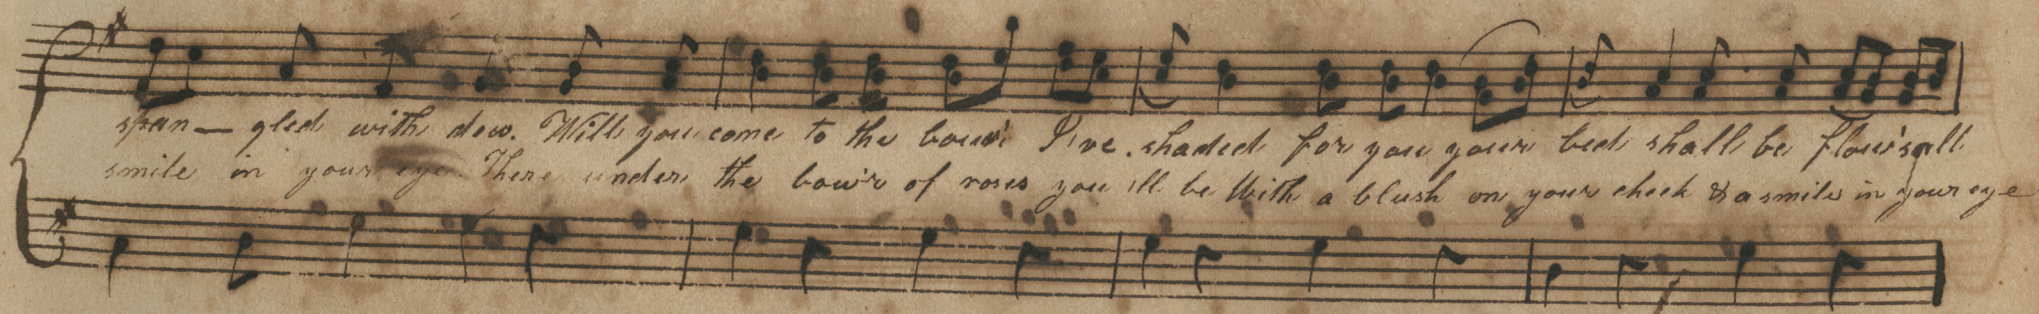 span — gled with dew. Will you come to the bow'r I've shaded for you your bed shall be flow's all
smile in your eye. There under the bow'r of roses you'll be With a blush on your cheek & a smile in your eye